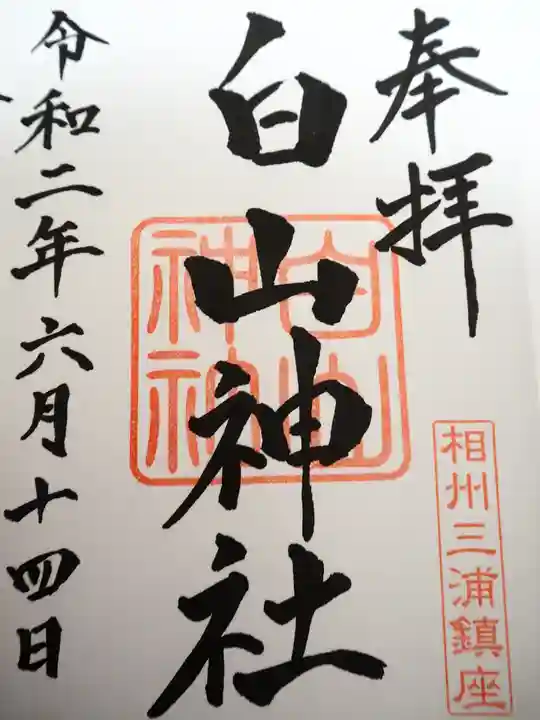 奉拝
相州三浦鎮座
白山神社
白山
神社
令和二年六月十四日